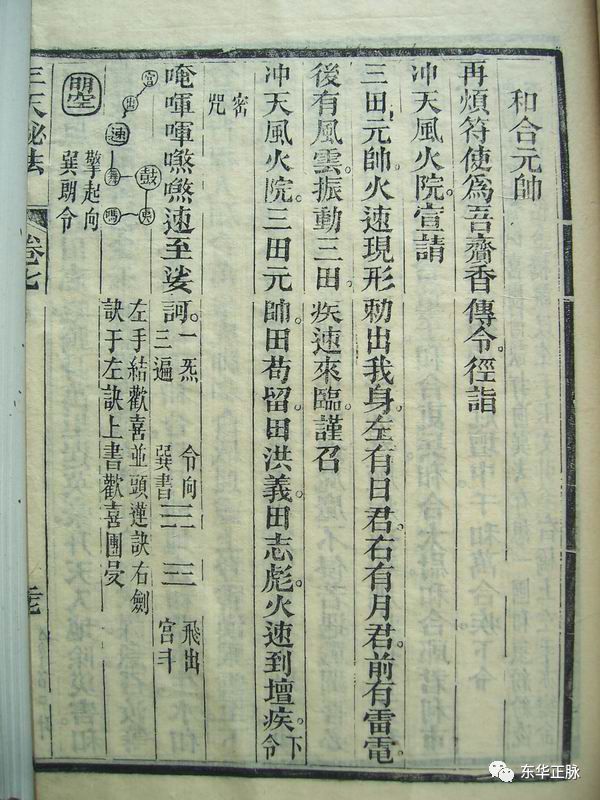 和合元帥
再煩符使爲吾齎香傳令。徑詣
冲天風火院。宣請
三田元帥火速現形勑出我身。左有日君。右有月君。前有雷電
後有風雲。振動三田。疾速來臨謹召
冲天風火院。三田元帥。田苟留。田洪義。田志彪。火速到壇疾。下令
密咒
唵㖸㖸嘫嘫速至娑訶。一炁三遍 令向巽書三三 飛出宮斗
左手結歡喜並頭蓮訣右劍
訣于左訣上書歡喜團旻
擎起向
巽朗令
速
鼓
三天秘法
卷七
东华正脉